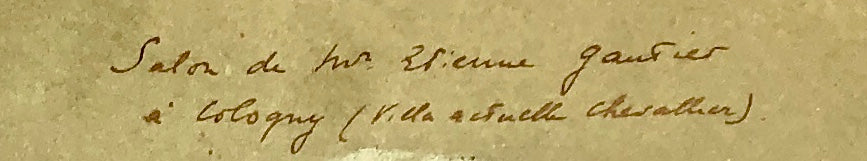 Salon de Mr. Etienne Gautier
à Cologny (Villa actuelle Chevallier)